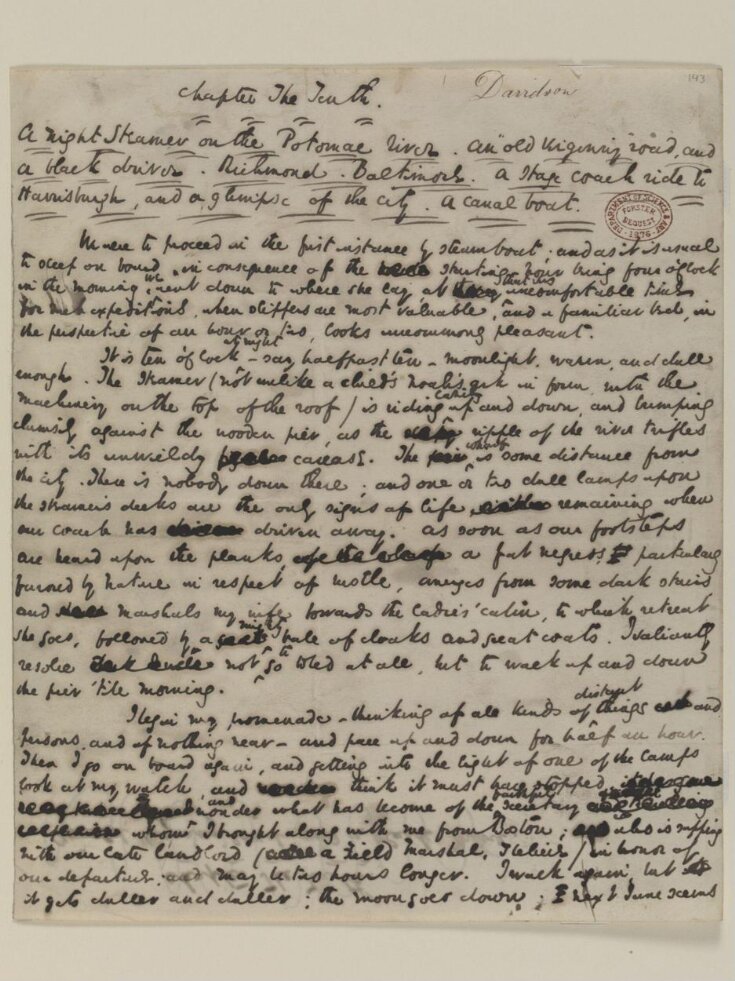 193
Chapter The Tenth.
Davidson
A night Steamer on the Potomac River. An old Virginny road, and
a black driver. Richmond. Baltimore. A Stage Coach ride to
Harrisburgh, and a glimpse of the city. A canal boat.
DEPARTMENT OF SCIENCE & ART
FORSTER BEQUEST
1876
We were to proceed in the first instance by steamboat; and as it is usual
to sleep on board, in consequence of the starting hour being four o'clock
in the morning, we went down to where she lay, at that uncomfortable time
for such expeditions, when slippers are most valuable, and a familiar bed, in
the perspective of an hour or two, looks uncommonly pleasant.
It is ten o'clock at night – say, half past ten – moonlight, warm, and dull
enough. The Steamer (not unlike a child's Noah's ark in form, with the
machinery on the top of the roof) is riding lazily up and down, and bumping
clumsily against the wooden pier, as the ripple of the river trifles
with its unwieldy carcase. The wharf is some distance from
the city. There is nobody down there; and one or two dull lamps upon
the steamer's decks are the only signs of life remaining when
our coach has driven away. As soon as our footsteps
are heard upon the planks, a fat negress, particularly
favored by nature in respect of bustle, emerges from some dark stairs
and marshals my wife towards the ladies' cabin, to which retreat
she goes, followed by a mighty bale of cloaks and great coats. I valiantly
resolve not to go to bed at all, but to walk up and down
the pier 'till morning.
I begin my promenade – thinking of all kinds of distant things and
persons, and of nothing near – and pace up and down for half an hour.
Then I go on board again, and getting into the light of one of the lamps
look at my watch, and think it must have stopped,
and wonder what has become of the faithful Secretary
whom I brought along with me from Boston; who is supping
with our late landlord (a Field Marshal, I believe) in honor of
our departure, and may be two hours longer. I walk again, but
it gets duller and duller; the moon goes down; next June seems